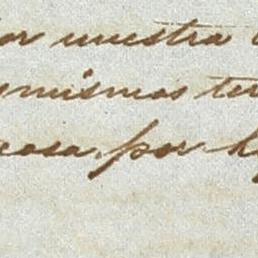 or nuestra
mismos
cosa, por